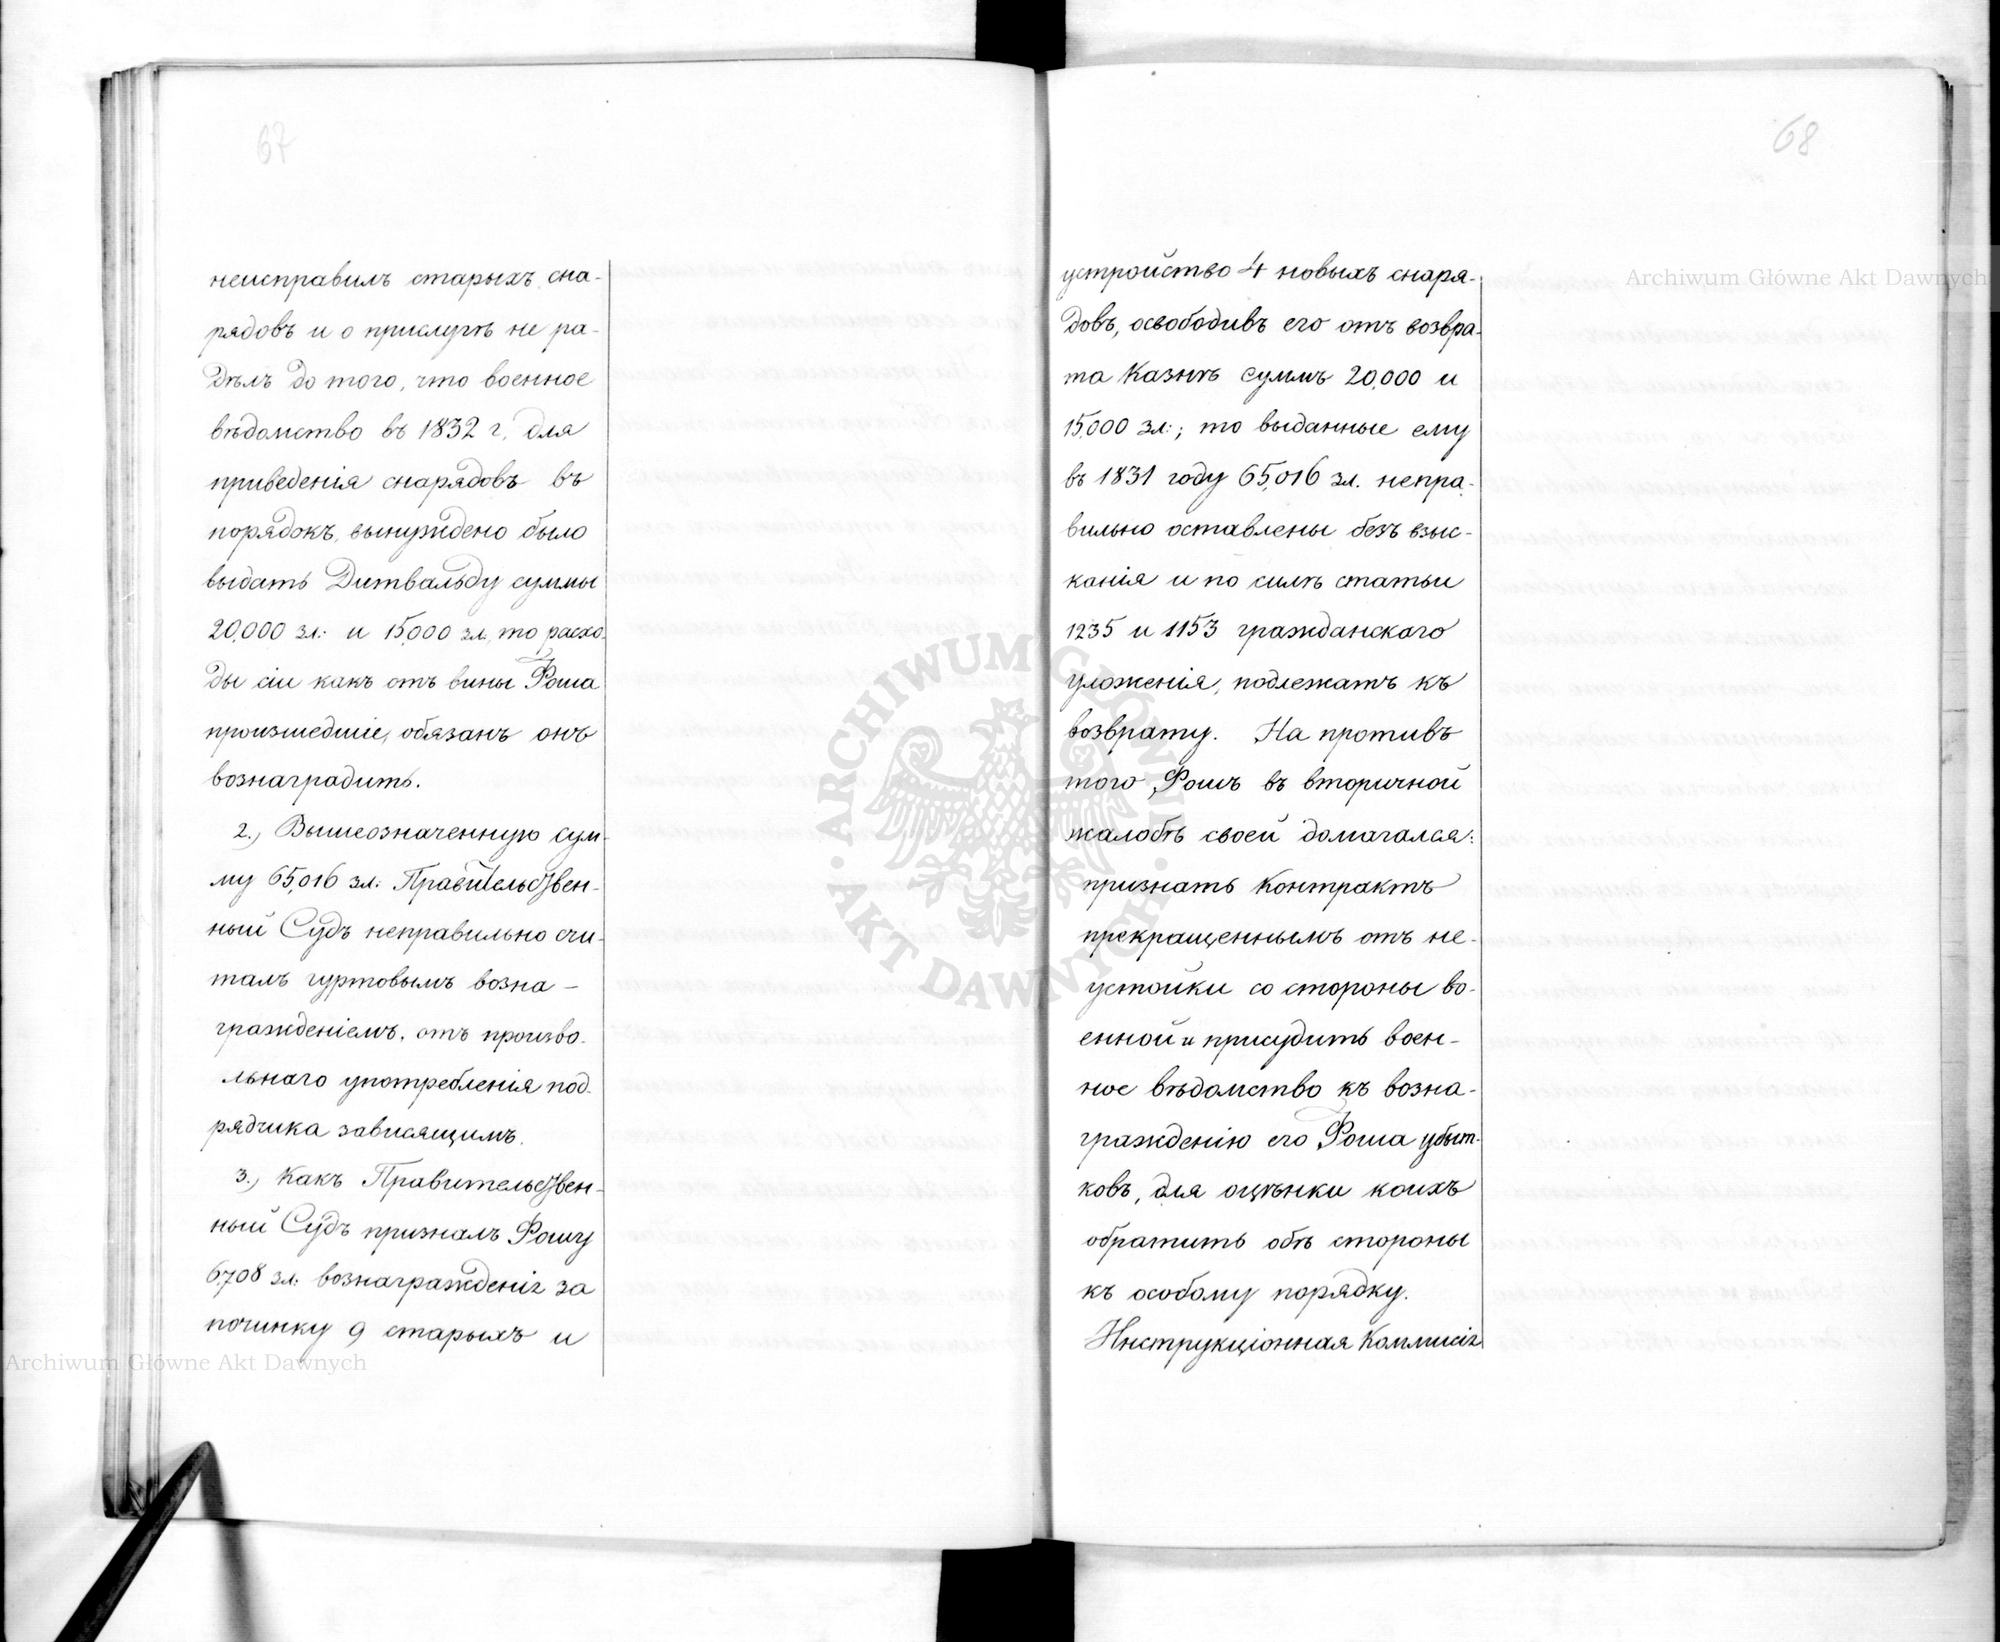 67
неисправилъ старыхъ сна-
рядовъ и о прислугѣ не ра-
дѣлъ до того, что военное
вѣдомство въ 1832 г. для
приведенія снарядовъ въ
порядокъ, вынуждено было
выдать Дитвальду суммы
20,000 зл: и 15,000 зл, то расхо-
ды сіи какъ отъ вины Роша
произшедшіе, обязанъ онъ
вознаградить.
2., Вышеозначенную сум-
му 65,016 зл: Правительствен-
ный Судъ неправильно счи-
талъ гуртовымъ возна-
гражденіемъ, отъ произво-
льнаго употребленія под-
рядчика зависящимъ.
3., Какъ Правительствен-
ный Судъ призналъ Рошу
6,708 зл: вознагражденія за
починку 9 старыхъ и
68
устройство 4 новыхъ снаря-
довъ, освободивъ его отъ возвра-
та Казнѣ суммъ 20,000 и
15,000 зл:; то выданные ему
въ 1831 году 65,016 зл. непра-
вильно оставлены безъ взыс-
канія и по силѣ статьи
1235 и 1153 гражданскаго
уложенія, подлежатъ къ
возврату. На противъ
того Рошъ въ вторичной
жалобѣ своей домагался:
признать Контрактъ
прекращеннымъ отъ не-
устойки со стороны во-
енной и присудить воен-
ное вѣдомство къ возна-
гражденію его Роша убыт-
ковъ, для оцѣнки коихъ
обратить обѣ стороны
къ особому порядку.
Инструкціонная Коммисія
Archiwum Główne Akt Dawnych
Archiwum Główne Akt Dawnych
ARCHIWUM GŁÓWNE AKT DAWNYCH